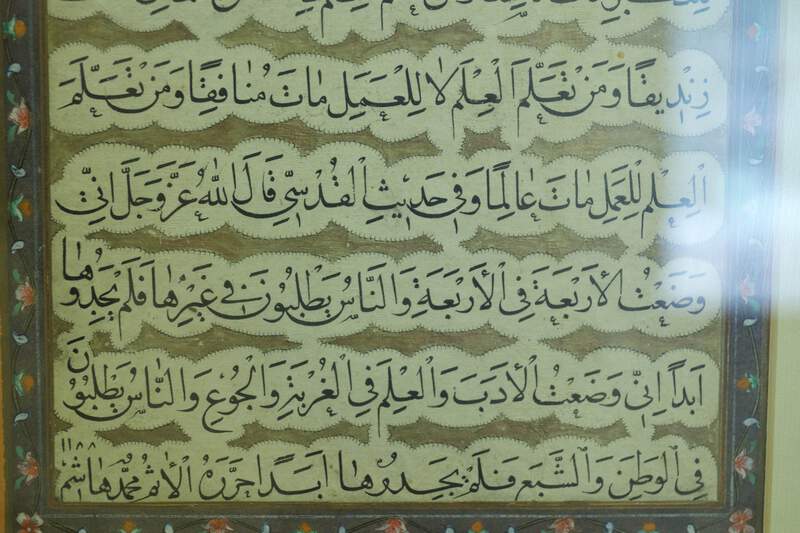 زِنْدِيقًا وَمَنْ تَعَلَّمَ الْعِلْمَ لَا لِلْعَمَلِ مَاتَ مُنَافِقًا وَمَنْ تَعَلَّمَ
الْعِلْمَ لِلْعَمَلِ مَاتَ عَالِمًا وَفِي حَدِيثِ الْقُدْسِيِّ قَالَ اللهُ عَزَّ وَجَلَّ اِنِّي
وَضَعْتُ الْأَرْبَعَةَ فِي الْأَرْبَعَةِ وَالنَّاسُ يَطْلُبُونَ فِي غَيْرِهَا فَلَمْ يَجِدُوهَا
اَبَدًا اِنِّي وَضَعْتُ الْأَدَبَ وَالْعِلْمَ فِي الْغُرْبَةِ وَالْجُوعِ وَالنَّاسُ يَطْلُبُونَ
فِي الْوَطَنِ وَالشَّبَعِ فَلَمْ يَجِدُوهَا اَبَدًا حَرَّرَهُ الْاَثِمُ مُحَمَّد هَاشِم ١١٨٨